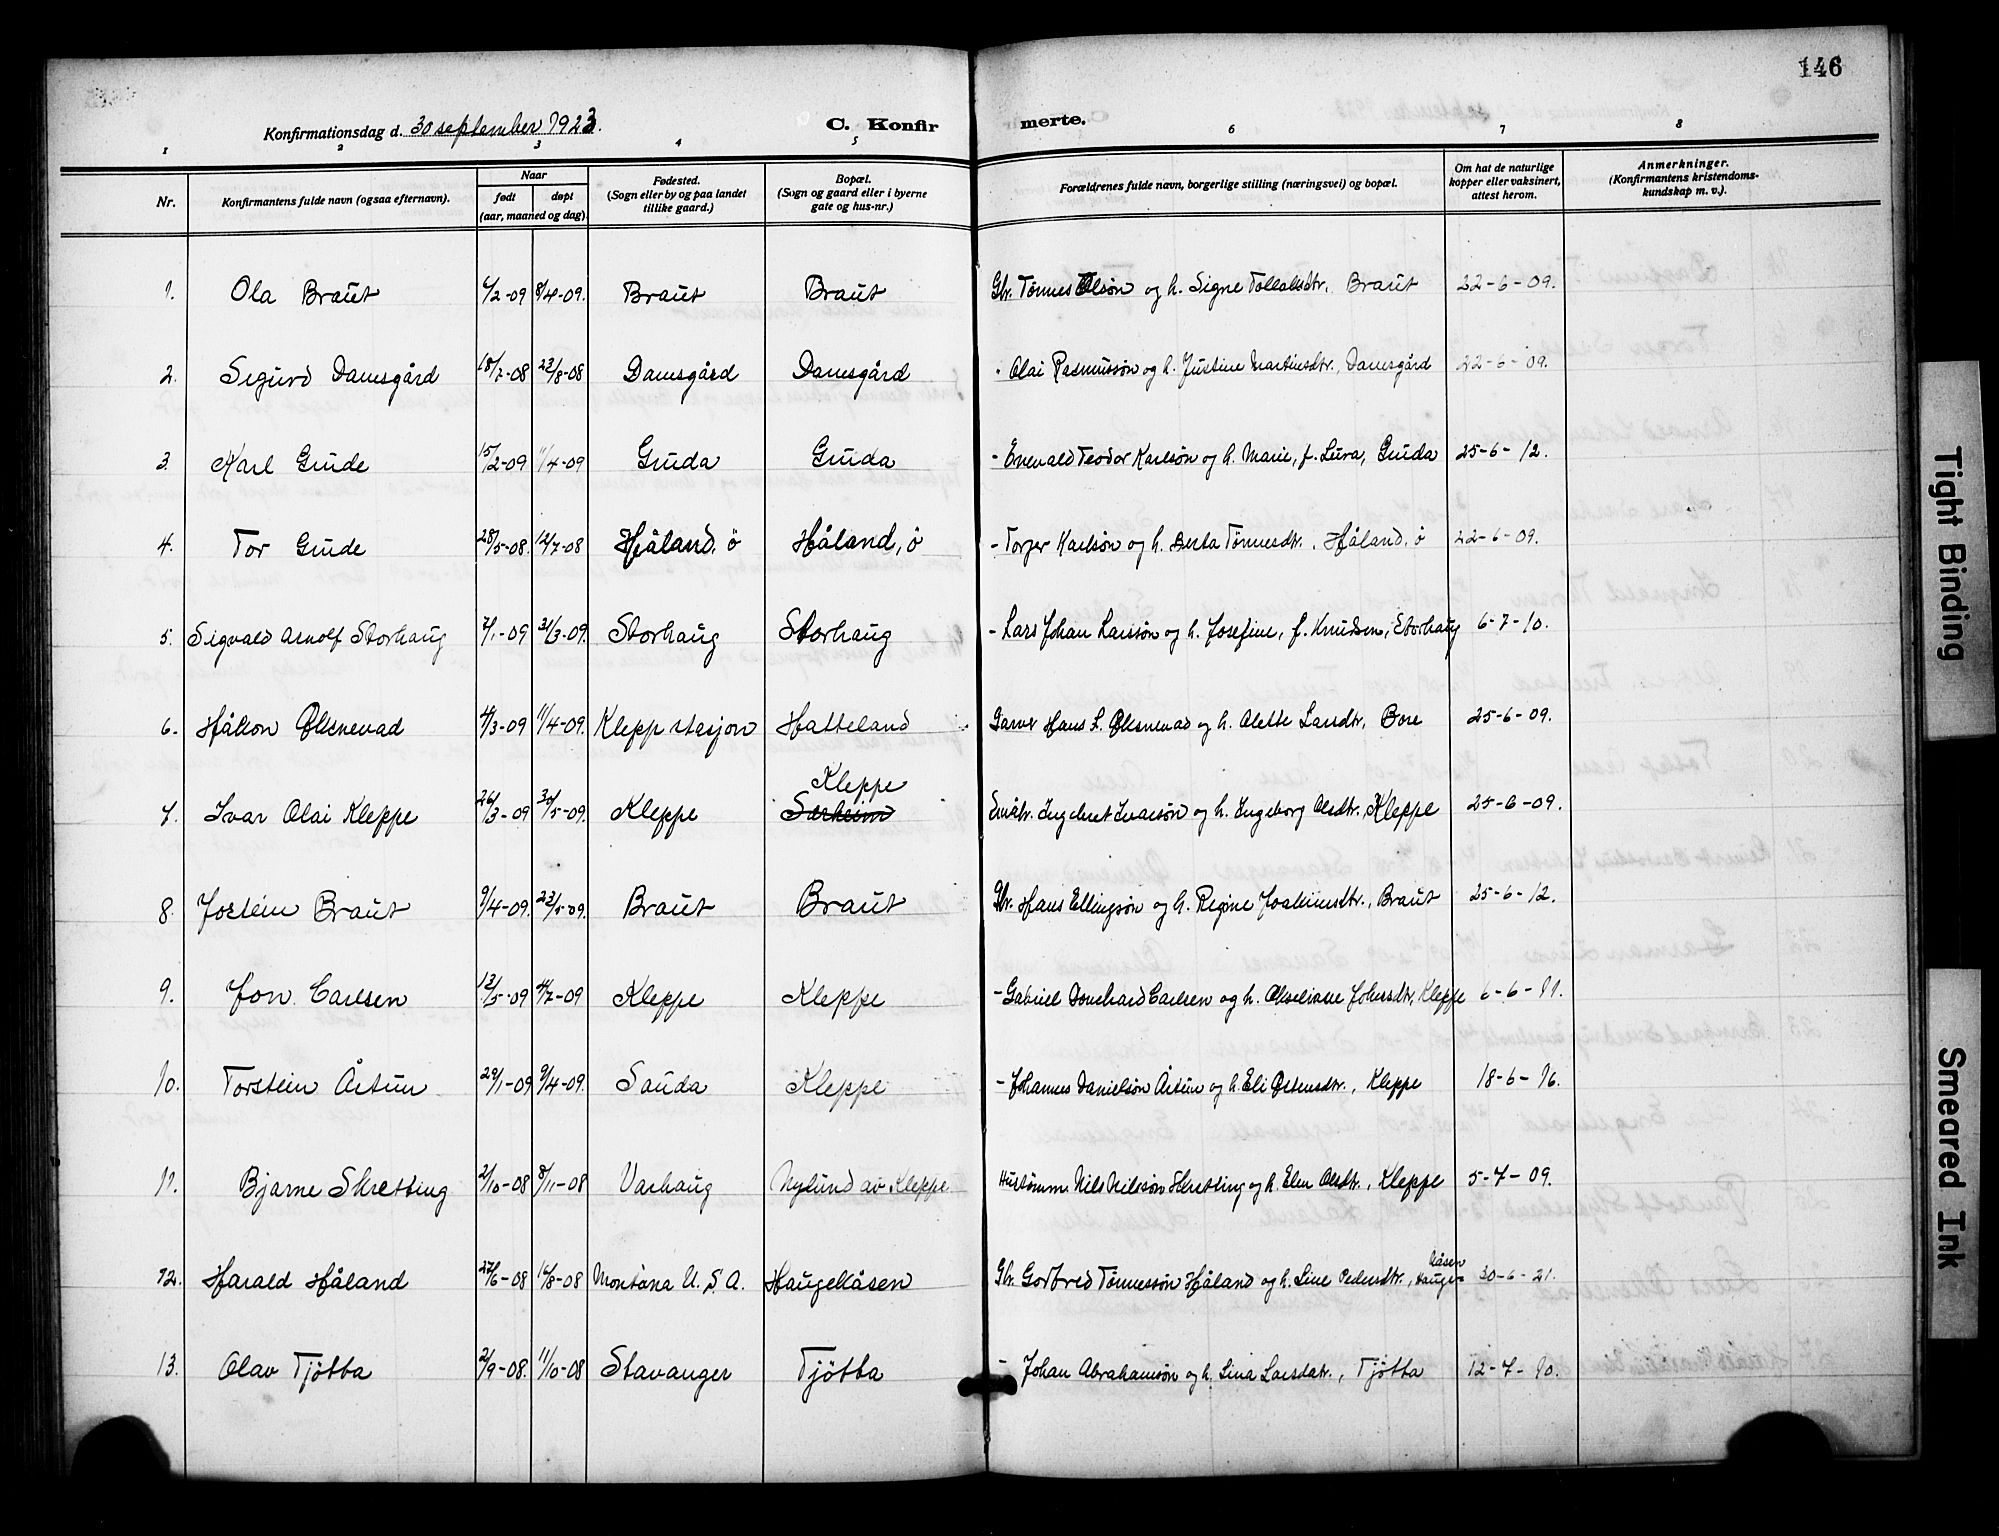 146
Konfirmationsdag d. 30 september 1923.
C. Konfirmerte.
1 2 3 4 5 6 7 8
Nr.
Konfirmantens fulde navn (ogsaa efternavn).
Naar
født døpt
(aar, maaned og dag).
Fødested.
(Sogn eller by og paa landet
tillike gaard.)
Bopæl.
(Sogn og gaard eller i byerne
gate og hus-nr.)
Forældrenes fulde navn, borgerlige stilling (næringsvei) og bopæl.
Om hat de naturlige
kopper eller vaksinert,
attest herom.
Anmerkninger.
(Konfirmantens kristendoms-
kundskap m. v.).
1. Ola Braut 4/2-09 8/4-09. Braut Braut Gbr. Tønnes Olsøn og h. Signe Tollaksdtr. Braut 22-6-09.
2. Sigurd Damsgård 18/7-08 23/8-08 Damsgård Damsgård - Olai Rasmussøn og h. Justine Martinsdtr., Damsgård 22-6-09.
3. Karl Grude 15/2-09 11/4-09 Gruda Gruda - Enevald Teodor Karlsøn og h. Marie, f. Lura, Gruda 25-6-12.
4. Tor Grude 28/5-08. 12/7-08 Håland, ö Håland, ö - Torger Karlsøn og h. Berta Tønnesdtr., Håland, ö 22-6-09.
5. Sigvald Arnolf Storhaug 7/1-09 21/3-09. Storhaug Storhaug - Lars Johan Larssøn og h. Josefine, f. Knudsen, Storhaug 6-7-10.
6. Håkon Ølsnevad 4/3-09 11/4-09. Klepp stasjon Hatteland Garver Hans L. Ølsnevad og h. Olette Larsdtr., Bore 25-6-09.
Kleppe
7. Ivar Olai Kleppe 26/3-09 30/5-09. Kleppe Særheim Småbr. Ingebret Ivarsøn og h. Ingeborg Olsdtr., Kleppe 25-6-09.
8. Jostein Braut 9/4-09. 23/5-09. Braut Braut Gbr. Hans Ellingsøn og h. Regine Joakimsdtr., Braut 25-6-12.
9. Jon Carlsen 13/5-09 4/7-09 Kleppe Kleppe - Gabriel Carlsen og h. Johnsdtr, Kleppe 6-6-11.
10. Torstein Årtun 29/1-09 9/4-09. Sauda Kleppe - Johannes Danielsøn Årtun og h. Eli Østensdtr., Kleppe 18-6-16.
11. Bjarne Skretting 2/10-08 8/11-08 Varhaug Nylund av Kleppe Hustømm. Nils Nilssøn Skretting og h. Elen Olsdtr., Kleppe 5-7-09.
12. Harald Håland 27/6-08 16/8-08 Montana U.S.A. Haugekåsen Gbr. Gotfred Tønnessøn Håland og h. Line Pedersdtr., Haugekåsen 30-6-21.
13. Olav Tjötta 2/9-08. 11/10-08 Stavanger Tjötta - Johan Abrahamsøn og h. Lina Larsdatr., Tjötta 12-7-10.
Tight Binding
Smeared Ink